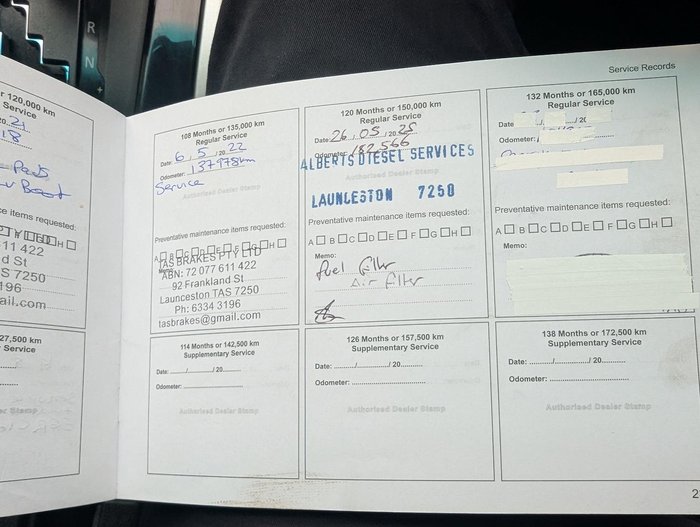 R
N
Service Records
r 120,000 km
Service
20 21
18
Pads
Boost
ce items requested:
11 422
d St
S 7250
196
ail.com
27,500 km
Service
108 Months or 135,000 km
Regular Service
Date: 6 / 5 / 20 22
Odometer: 137978km
Service
Authorised Dealer Stamp
Preventative maintenance items requested:
A B C D E F G H
Memo:
TAS BRAKES PTY LTD
ABN: 72 077 611 422
92 Frankland St
Launceston TAS 7250
Ph: 6334 3196
tasbrakes@gmail.com
114 Months or 142,500 km
Supplementary Service
Date: ........../........../ 20......
Odometer: ..............................
Authorised Dealer Stamp
120 Months or 150,000 km
Regular Service
Date: 26 / 05 / 20 25
Odometer: 182566
ALBERTS DIESEL SERVICES
Authorised Dealer Stamp
LAUNCESTON 7250
Preventative maintenance items requested:
A B C D E F G H
Memo:
fuel filter
Air filter
126 Months or 157,500 km
Supplementary Service
Date: ........../........../ 20......
Odometer: ..............................
Authorised Dealer Stamp
132 Months or 165,000 km
Regular Service
Date / 20
Odometer:
Preventative maintenance items requested:
A B C D E F G H
Memo:
138 Months or 172,500 km
Supplementary Service
Date: ........../........../ 20......
Odometer: ..............................
Authorised Dealer Stamp